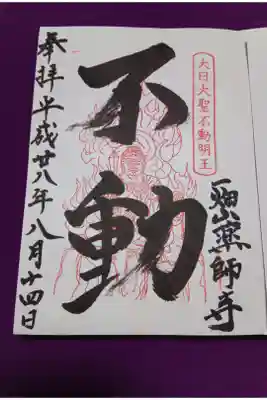 一畑山薬師寺
大日大聖不動明王
不動
奉拝平成廿八年八月十四日